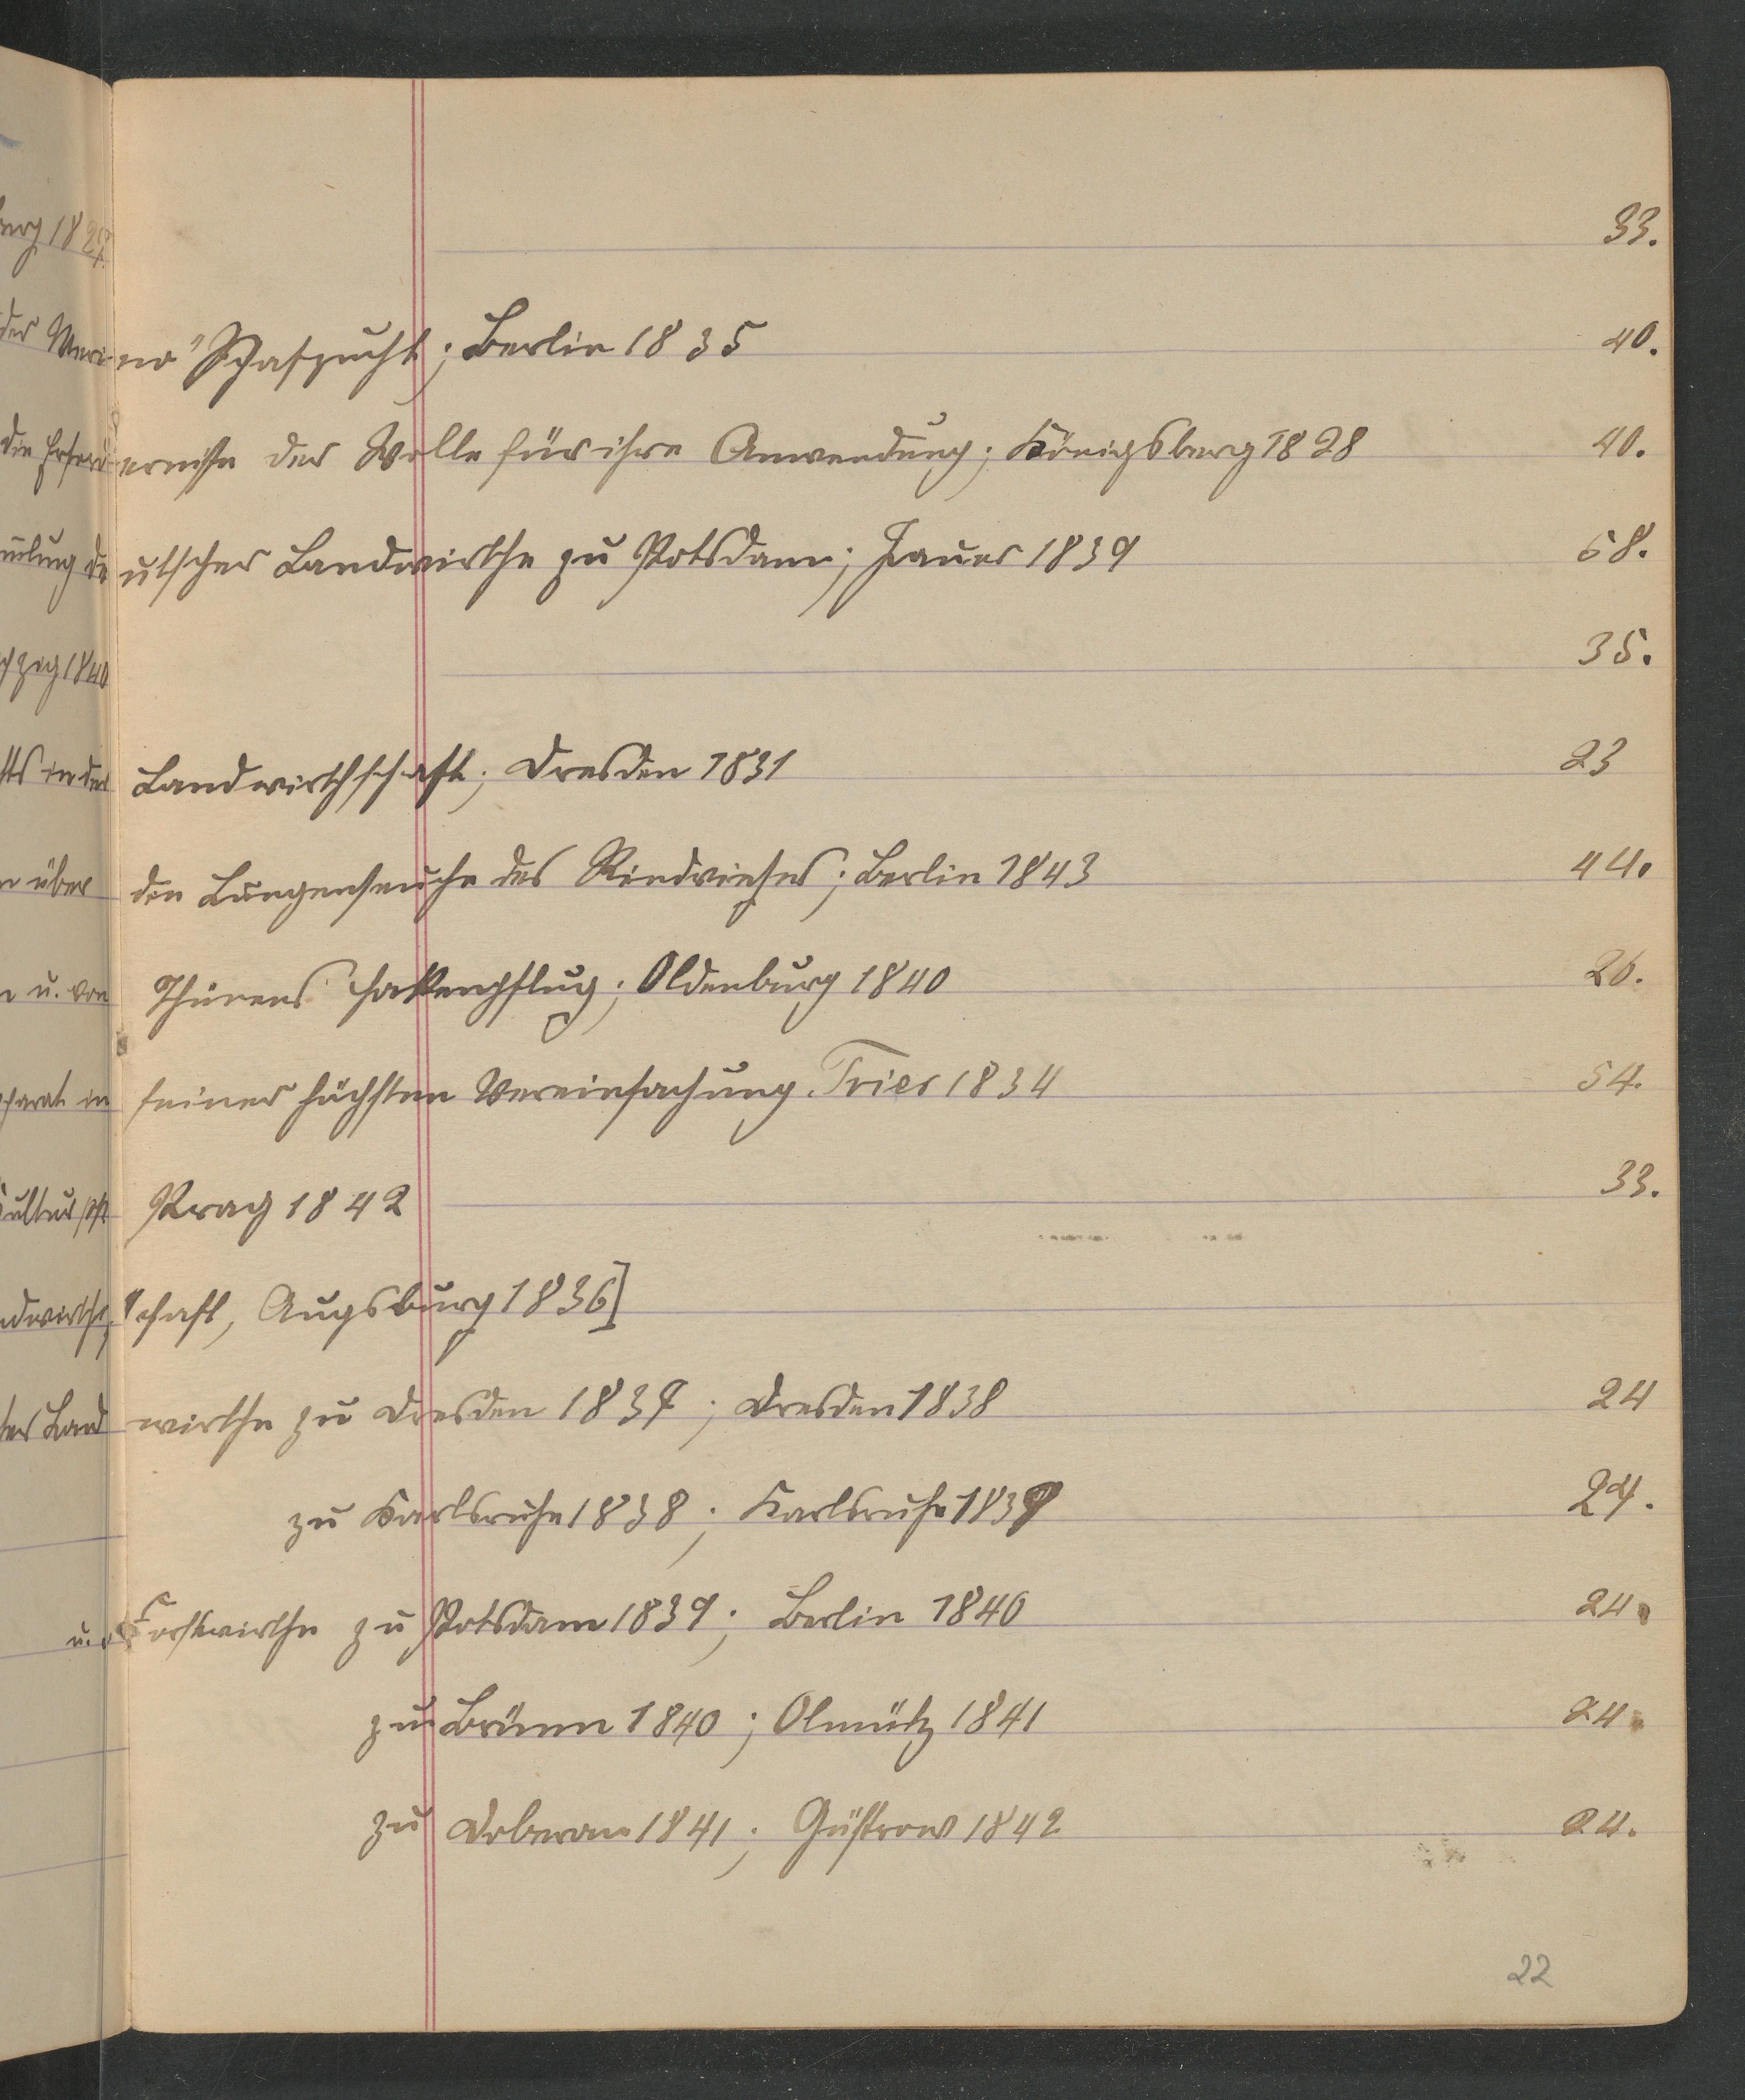 berg 1827. 33.
der Merino Schafzucht; Berlin 1835 40.
die Erfordernisse der Wolle für ihre Anwendung; Königsberg 1828 40.
mlung deutscher Landwirthe zu Potsdam; Jauer 1839 58.
pzig 1840 35.
in der Landwirthschaft; Dresden 1831 23
über den Lungenseuche des Rindviehes; Berlin 1843 44.
u. von Thünens Hakenpflug; Oldenburg 1840 26.
parat in seiner höchsten Vereinfachung. Trier 1834 54.
Prag 1842 33.
ndwirthschaft, Augsburg 1836]
Landwirthe zu Dresden 1837; Dresden 1838 24
zu Karlsruhe 1838; Karlsruhe 1839 24.
u. Forstwirthe zu Potsdam 1839; Berlin 1840 24.
zu Brünn 1840; Olmütz 1841 24.
zu Doberan 1841; Güstrow 1842 24.
22